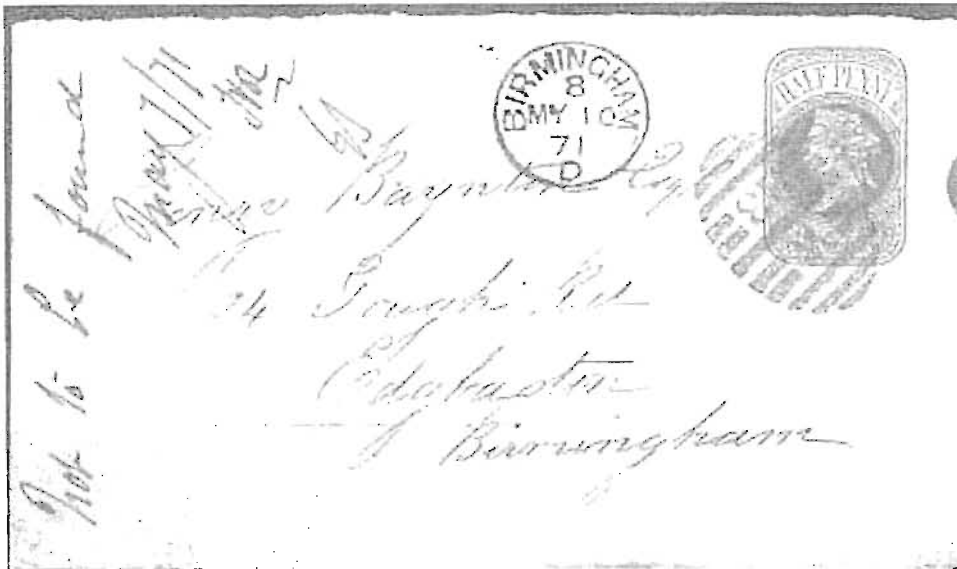 Not to be found
May 17/71
BIRMINGHAM
8
MY 16
71
D
HALF PENNY
Baynton Esq
24 Gough's Rd
Edgbaston
Birmingham